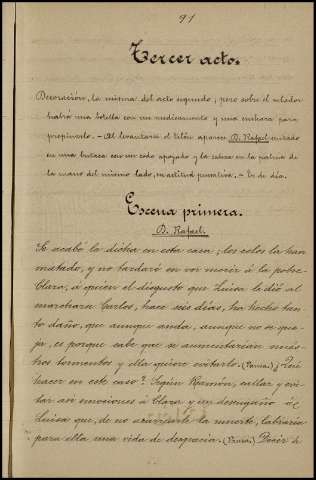 91
Tercer acto.
Decoración, la misma del acto segundo; pero sobre el velador
habrá una botella con un medicamento y una cuchara para
propinarlo. - Al levantarse el telón aparece D. Rafael sentado
en una butaca con un codo apoyado y la cabeza en la palma de
la mano del mismo lado, en actitud pensativa. - Es de día.
Escena primera.
D. Rafael.
Se acabó la dicha en esta casa; los celos la han
matado, y no tardaré en ver morir á la pobre
Clara, á quien el disgusto que Luisa le dió al
marcharse Carlos, hace seis días, ha hecho tan-
to daño, que aunque anda, aunque no se que-
ja, es porque sabe que se aumentarían mis
tormentos y ella quiere evitarlo. (Pausa.) ¿Qué
hacer en este caso? Según Ramón, callar y evi-
tar así emociones á Clara y un desengaño á
Luisa que, de no acarrearle la muerte, labraría
para ella una vida de desgracia. (Pausa.) Decir á